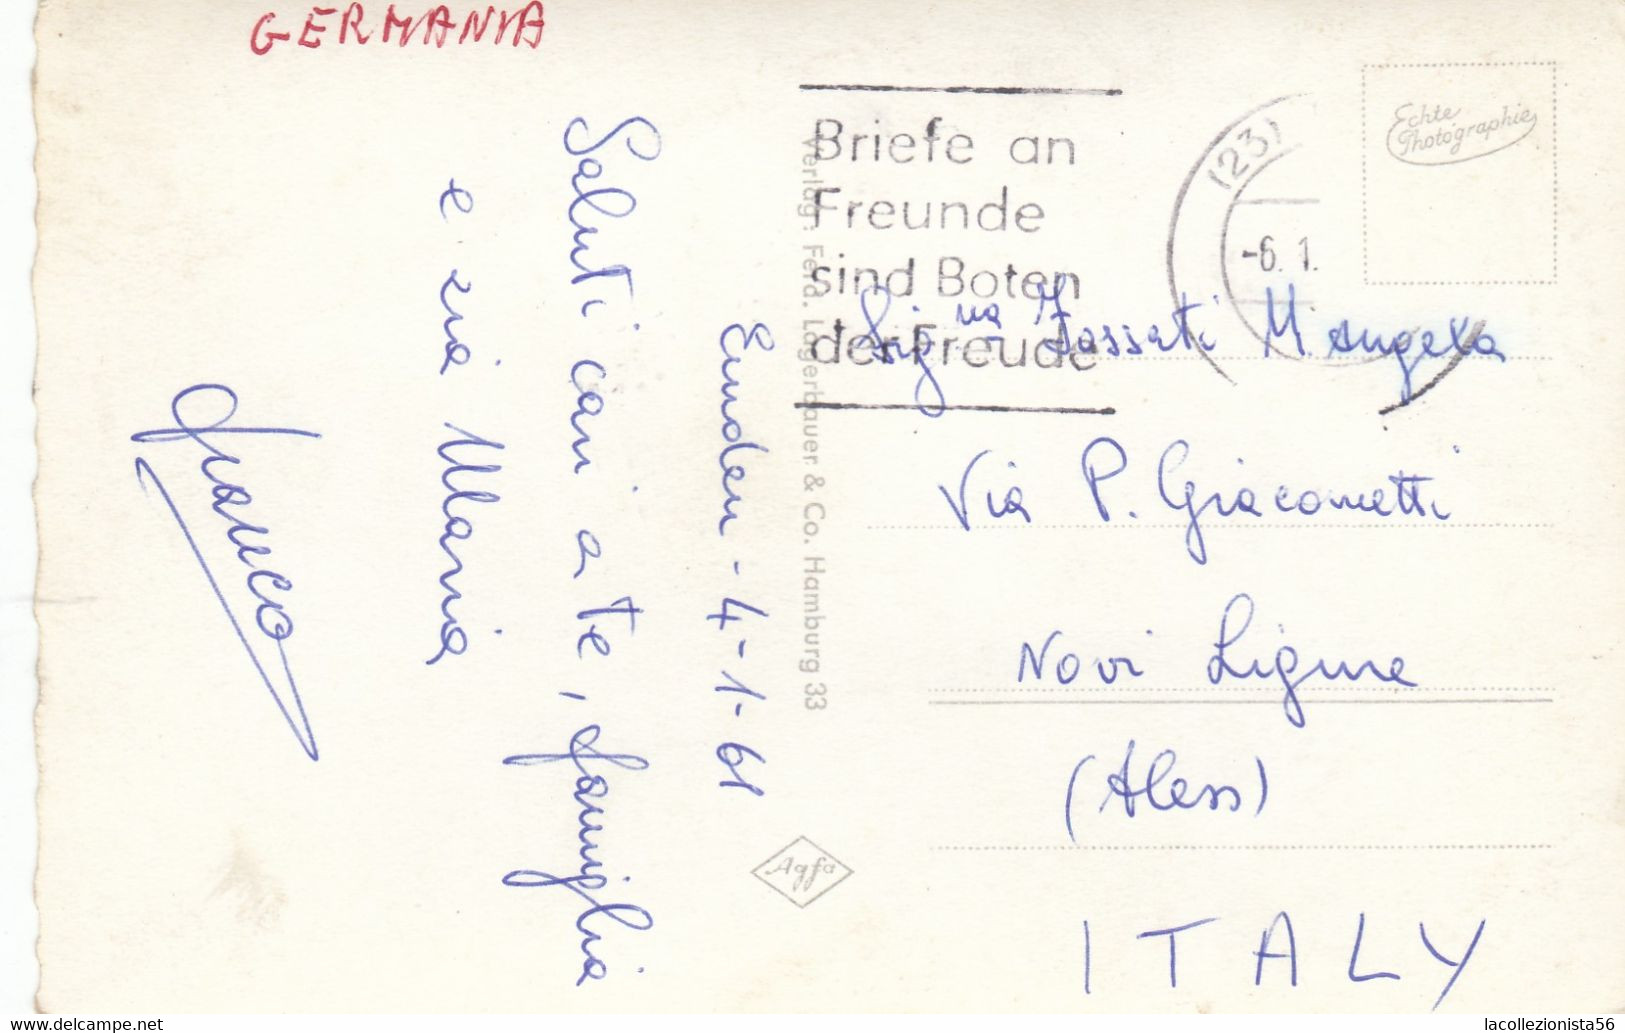 GERMANIA
Emden - 4-1-61
Saluti cari a te, famiglia
e zia Maria
Franco
Verlag: Ferd. Lagerbauer & Co. Hamburg 33
Agfa
Briefe an
Freunde
sind Boten
der Freude
(23)
-6. 1.
Echte
Photographie
Sig.na Fossati M. Angela
Via P. Giacometti
Novi Ligure
(Aless)
ITALY
lacollezionista56
https://www.delcampe.net